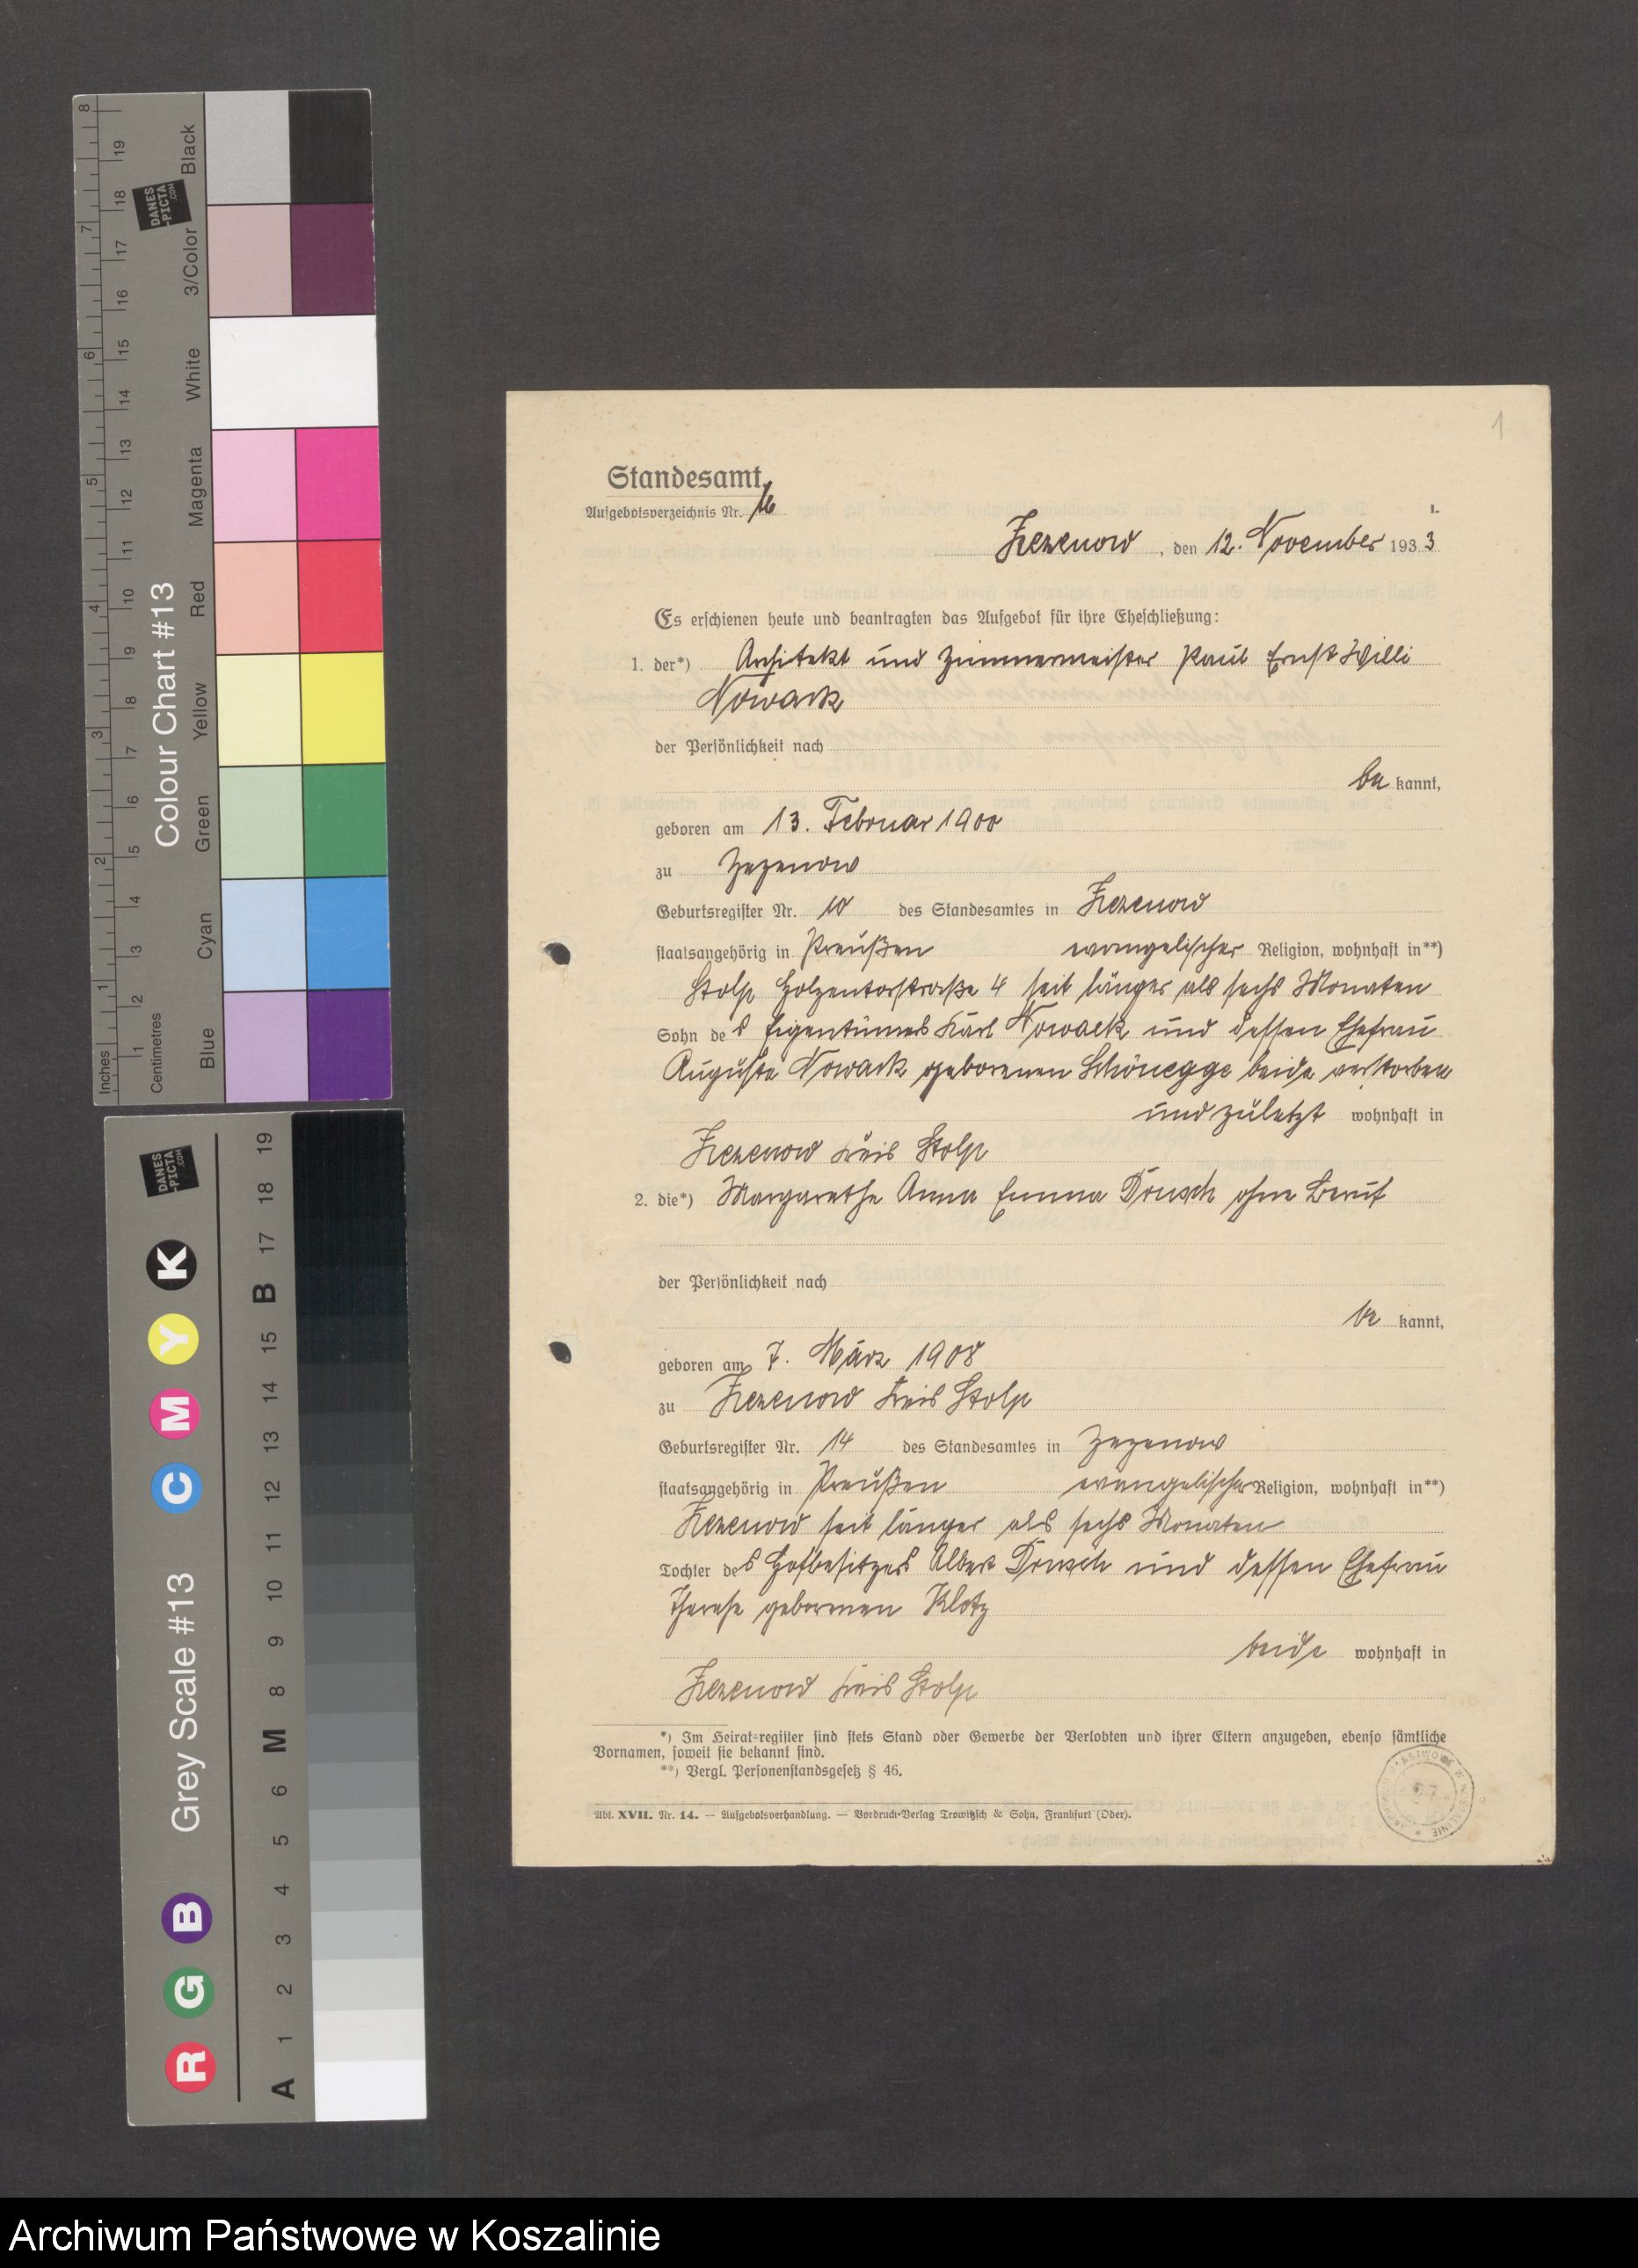 Inches
1
2
3
4
5
6
7
8
Centimetres
1
2
3
4
5
6
7
8
9
10
11
12
13
14
15
16
17
18
19
Colour Chart #13
Blue
Cyan
Green
Yellow
Red
Magenta
White
3/Color
Black
DANES
-PICTA
.COM
Grey Scale #13
R
G
B
C
M
Y
K
A
1
2
3
4
5
6
M
8
9
10
11
12
13
14
15
B
17
18
19
DANES
-PICTA
.COM
1
Standesamt
Aufgebotsverzeichnis Nr. 16
I.
Zezenow, den 12. November 1933
Es erschienen heute und beantragten das Aufgebot für ihre Eheschließung:
1. der*) Architekt und Zimmermeister Paul Ernst Willi
Nowack
der Persönlichkeit nach
be kannt,
geboren am 13. Februar 1900
zu Zezenow
Geburtsregister Nr. 10 des Standesamtes in Zezenow
staatsangehörig in Preußen evangelischer Religion, wohnhaft in**)
Stolp Holzentorstraße 4 seit länger als sechs Monaten
Sohn des Eigentümers Karl Nowack und dessen Ehefrau
Auguste Nowack geborenen Schönegge beide verstorben
und zuletzt wohnhaft in
Zezenow Kreis Stolp
2. die*) Margarethe Anna Emma ohne Beruf
der Persönlichkeit nach
be kannt,
geboren am 7. März 1908
zu Zezenow Kreis Stolp
Geburtsregister Nr. 14 des Standesamtes in Zezenow
staatsangehörig in Preußen evangelischer Religion, wohnhaft in**)
Zezenow seit länger als sechs Monaten
Tochter des Hofbesitzers Albert und dessen Ehefrau
Therese geborenen Klotz
beide wohnhaft in
Zezenow Kreis Stolp
*) Im Heiratsregister sind stets Stand oder Gewerbe der Verlobten und ihrer Eltern anzugeben, ebenso sämtliche
Vornamen, soweit sie bekannt sind.
**) Vergl. Personenstandsgesetz § 46.
Abt. XVII. Nr. 14. — Aufgebotsverhandlung. — Vordruck-Verlag Trowitzsch & Sohn, Frankfurt (Oder).
Archiwum Państwowe w Koszalinie